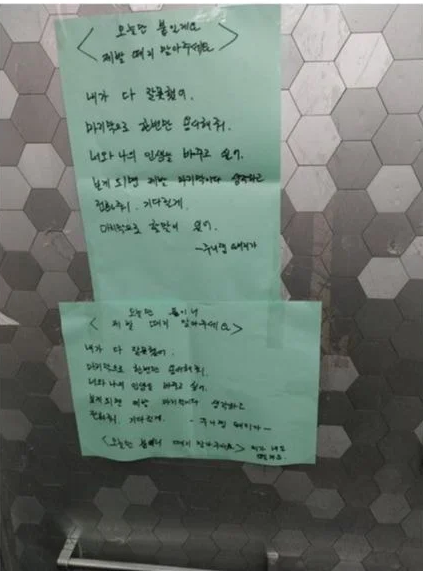 오늘만 붙일게요
< 제발 떼지 말아주세요 >
내가 다 잘못했어.
마지막으로 한번만 용서해줘.
너와 나의 인생을 바꾸고 싶어.
보게 되면 제발 마지막이다 생각하고
전화줘. 기다릴게.
마지막으로 할말이 있어.
오늘만 붙이니
< 제발 떼지 말아주세요 >
내가 다 잘못했어.
마지막으로 한번만 용서해줘.
너와 나의 인생을 바꾸고 싶어.
보게 되면 제발 마지막이다 생각하고
전화줘. 기다릴게.
<오늘만 떼지 말아주세요> 제가